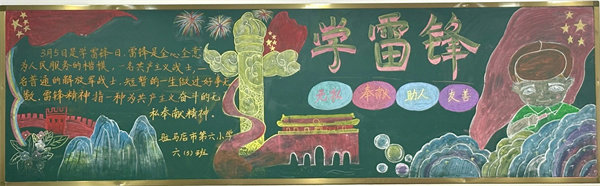 3月5日是学雷锋日,雷锋是全心全意
为人民服务的楷模,一名共产主义战士,一
名普通的解放军战士,短暂的一生做过好事无
数,雷锋精神指一种为共产主义奋斗的无
私奉献精神。
驻马店市第六小学
六(5)班
学雷锋
奉献
助人
友善